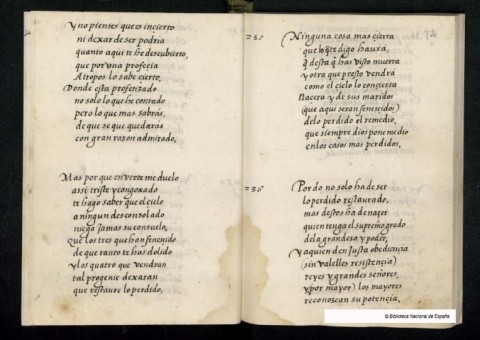 Y no pienses que es incierto
ni dexar de ser podria
quanto aqui te he descubierto,
que por vna profecia
Atropos lo sabe cierto,
Donde esta profetizado
no solo lo que he contado
pero lo que mas sabras,
de que se que quedaras
con gran razon admirado,
Mas por que en verte me duelo
assi triste y congoxado
te hago saber que el cielo
a ningun desconsolado
niega jamas su consuelo,
Que los tres que han fenescido
de que tanto te has dolido
y los quatro que vendran
tal progenie dexaran
que restaure lo perdido,
35
Ninguna cosa mas cierta
que lo que te digo haura,
q̃ desta q̃ has visto muerta
y otra que presto vendra
como el cielo lo concierta
Nacera y de sus maridos
(que aqui seran fenescidos)
de lo perdido el remedio,
que siempre dios pone medio
en los casos mas perdidos,
36
Por do no solo ha de ser
lo perdido restaurado,
mas destos ha de naçer
quien tenga el supremo grado
de la grandesa y poder,
Y a quien den justa obediencia
(sin valelles resistencia)
reyes y grandes señores,
y por mayor los mayores
reconozcan su potencia,
© Biblioteca Nacional de España